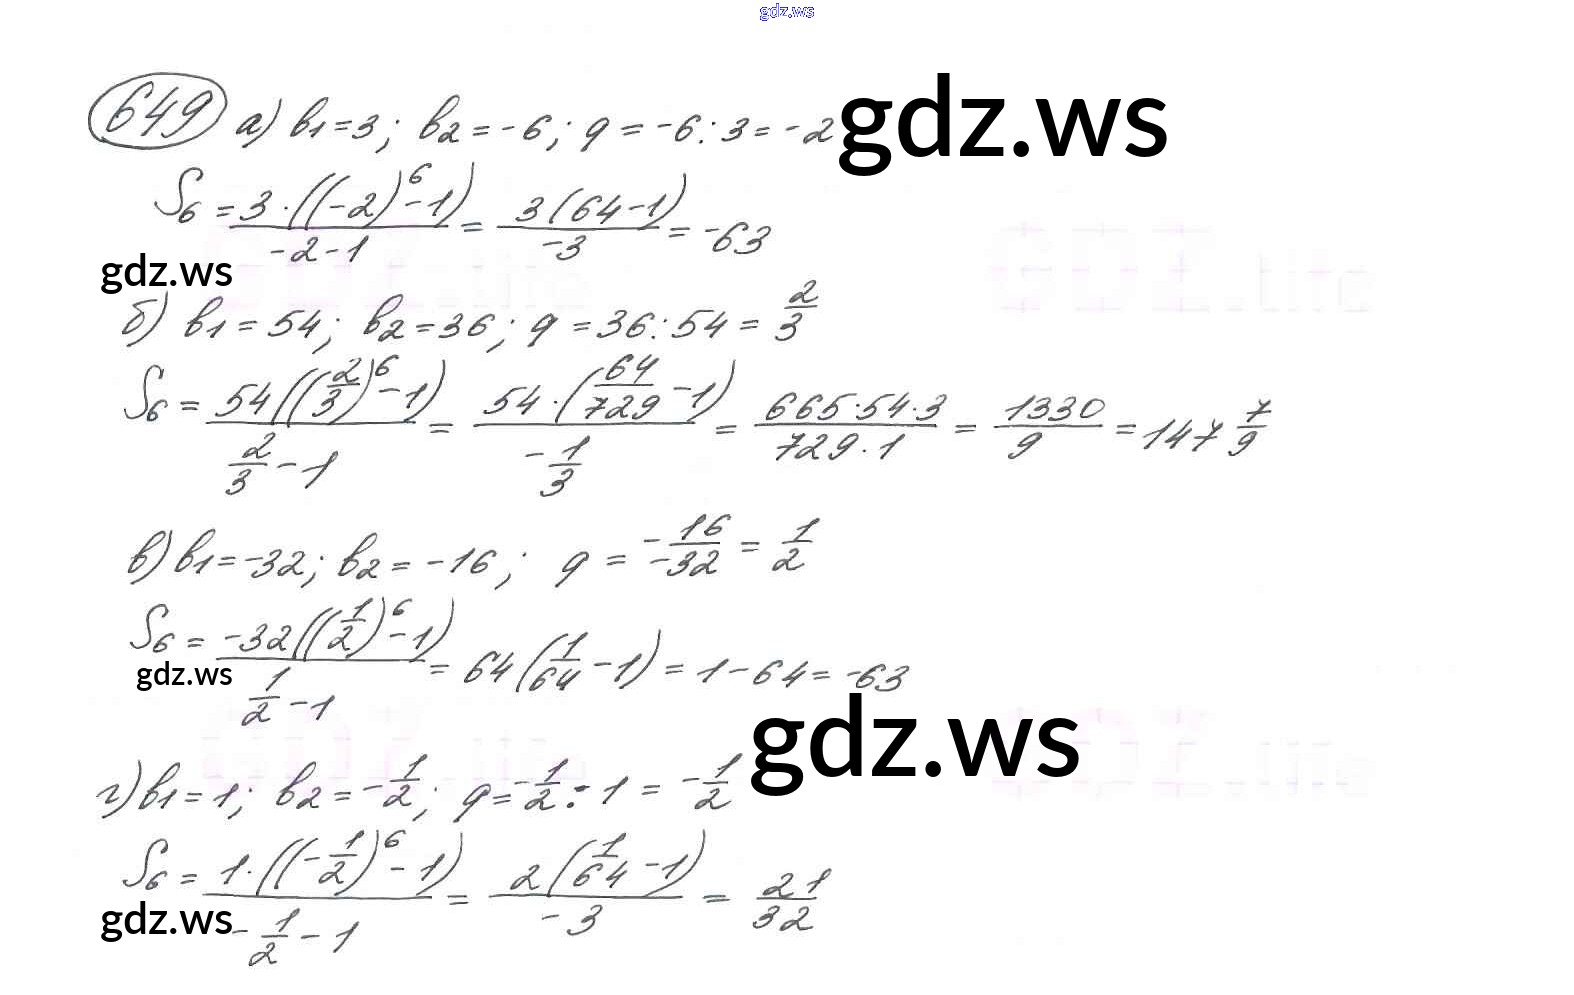 gdz.ws
649 а) b₁=3; b₂=-6; q=-6:3=-2 gdz.ws
S₆ = 3·((-2)⁶-1)/(-2-1) = 3(64-1)/(-3) = -63
gdz.ws
б) b₁=54; b₂=36; q=36:54=2/3
S₆ = 54((2/3)⁶-1)/(2/3-1) = 54·(64/729-1)/(-1/3) = 665·54·3/(729·1) = 1330/9 = 147 7/9
в) b₁=-32; b₂=-16; q = -16/-32 = 1/2
S₆ = -32((1/2)⁶-1)/(1/2-1) = 64(1/64-1) = 1-64 = -63
gdz.ws
gdz.ws
г) b₁=1; b₂=-1/2; q=-1/2:1=-1/2
S₆ = 1·((-1/2)⁶-1)/(-1/2-1) = 2(1/64-1)/(-3) = 21/32
gdz.ws